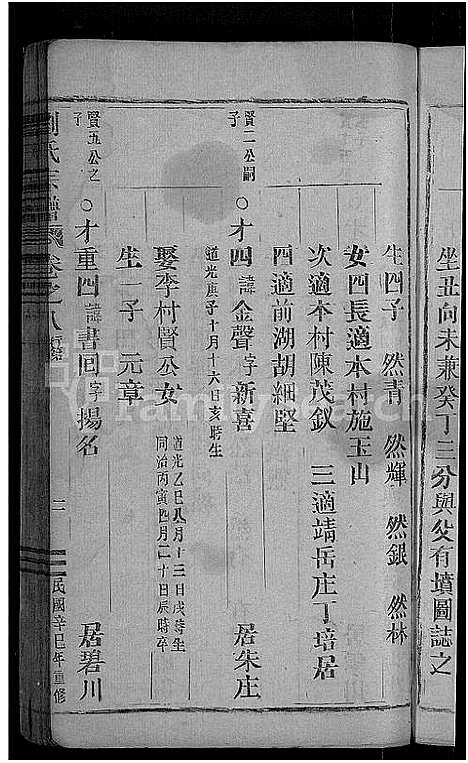 坐丑向未兼癸丁三分與父有墳圖誌之
生四子 然青 然輝 然銀 然林
女四長適本村施玉山
次適本村陳茂釵 三適靖岳庄丁培居
四適前湖胡細堅
賢二公嗣子
○才四諱金聲字新喜 居朱庄
道光庚子十月十六日亥時生
娶李村賢公女
道光乙巳八月十三日戌時生
同治丙寅四月二十日辰時卒
生一子 元章
賢五公之子
○才重四諱書回字揚名 居碧川
劉氏宗譜 卷之八 二 民國辛巳年重修
familysearch